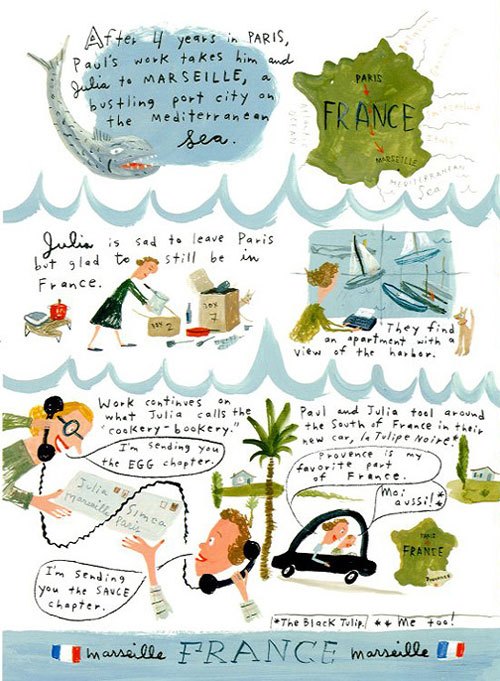 After 4 years in PARIS,
Paul's work takes him and
Julia to MARSEILLE, a
bustling port city on
the Mediterranean
Sea.
PARIS
FRANCE
MARSEILLE
MEDITERRANEAN
Sea
Julia is sad to leave Paris
but glad to still be in
France.
BOX 2
BOX
7
They find
an apartment with a
view of the harbor.
Work continues on
what Julia calls the
"cookery-bookery."
I'm sending you
the EGG chapter.
Julia
Marseille
Simca
Paris
I'm sending
you the SAUCE
chapter.
Paul and Julia tool around
the South of France in their
new car, la Tulipe Noire!*
Provence is my
favorite part
of France.
Moi
aussi!**
PARIS
FRANCE
PROVENCE
*The Black Tulip. ** Me too!
marseille FRANCE marseille